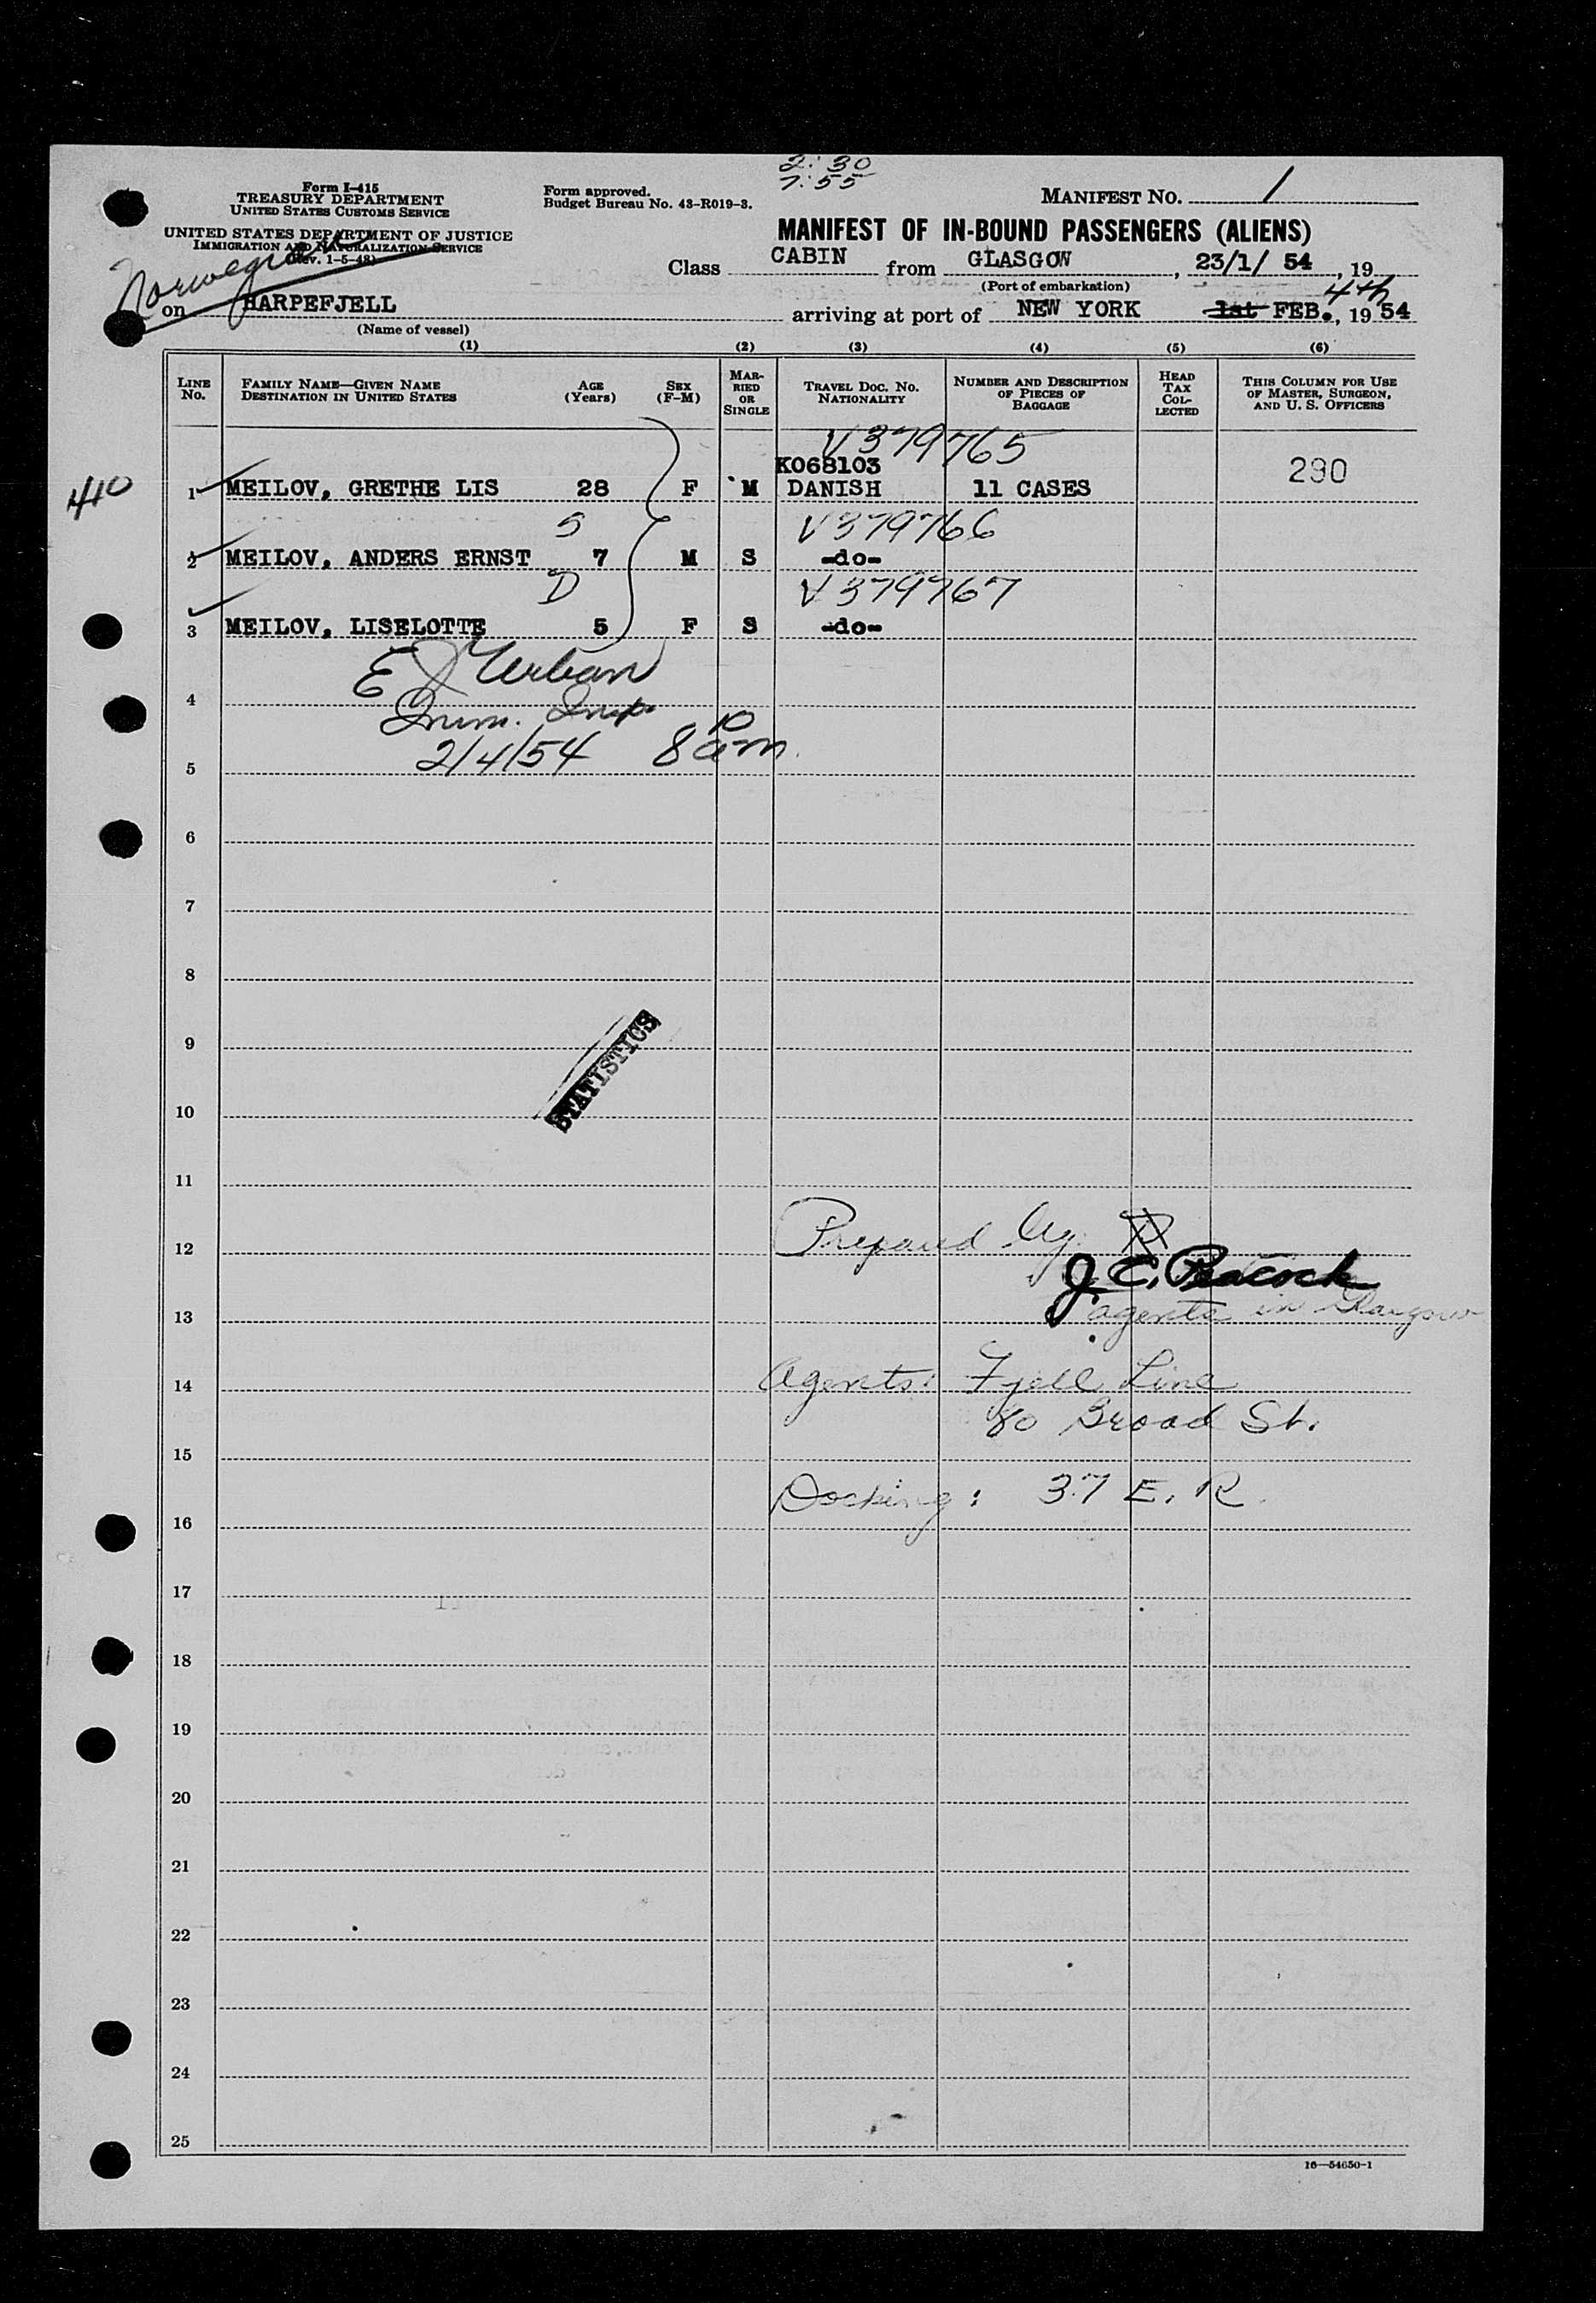 2:30
7:55
Form I-415
TREASURY DEPARTMENT
UNITED STATES CUSTOMS SERVICE
Form approved.
Budget Bureau No. 43-R019-3.
MANIFEST NO. 1
UNITED STATES DEPARTMENT OF JUSTICE
IMMIGRATION AND NATURALIZATION SERVICE
(Rev. 1-5-48)
Norwegian
MANIFEST OF IN-BOUND PASSENGERS (ALIENS)
Class CABIN from GLASGOW, 23/1/ 54, 19
(Port of embarkation)
4th
on HARPEFJELL arriving at port of NEW YORK 1st FEB., 19 54
(Name of vessel)
(1) (2) (3) (4) (5) (6)
LINE NO.
FAMILY NAME—GIVEN NAME
DESTINATION IN UNITED STATES
AGE
(Years)
SEX
(F-M)
MAR-
RIED
OR
SINGLE
TRAVEL DOC. NO.
NATIONALITY
NUMBER AND DESCRIPTION
OF PIECES OF
BAGGAGE
HEAD
TAX
COL-
LECTED
THIS COLUMN FOR USE
OF MASTER, SURGEON,
AND U. S. OFFICERS
V379765
K068103
410 1 MEILOV, GRETHE LIS 28 F M DANISH 11 CASES 290
S V379766
2 MEILOV, ANDERS ERNST 7 M S -do-
D V379767
3 MEILOV, LISELOTTE 5 F S -do-
E J Urban
4
Imm. Insp.
2/4/54 8 10 am
5
6
7
8
9
STATISTICS
10
11
12 Prepared by:
J. C. Peacock
13 agents in Glasgow
14 Agents: Fjell Line
80 Broad St.
15
Docking: 37 E. R.
16
17
18
19
20
21
22
23
24
25
16—54650-1